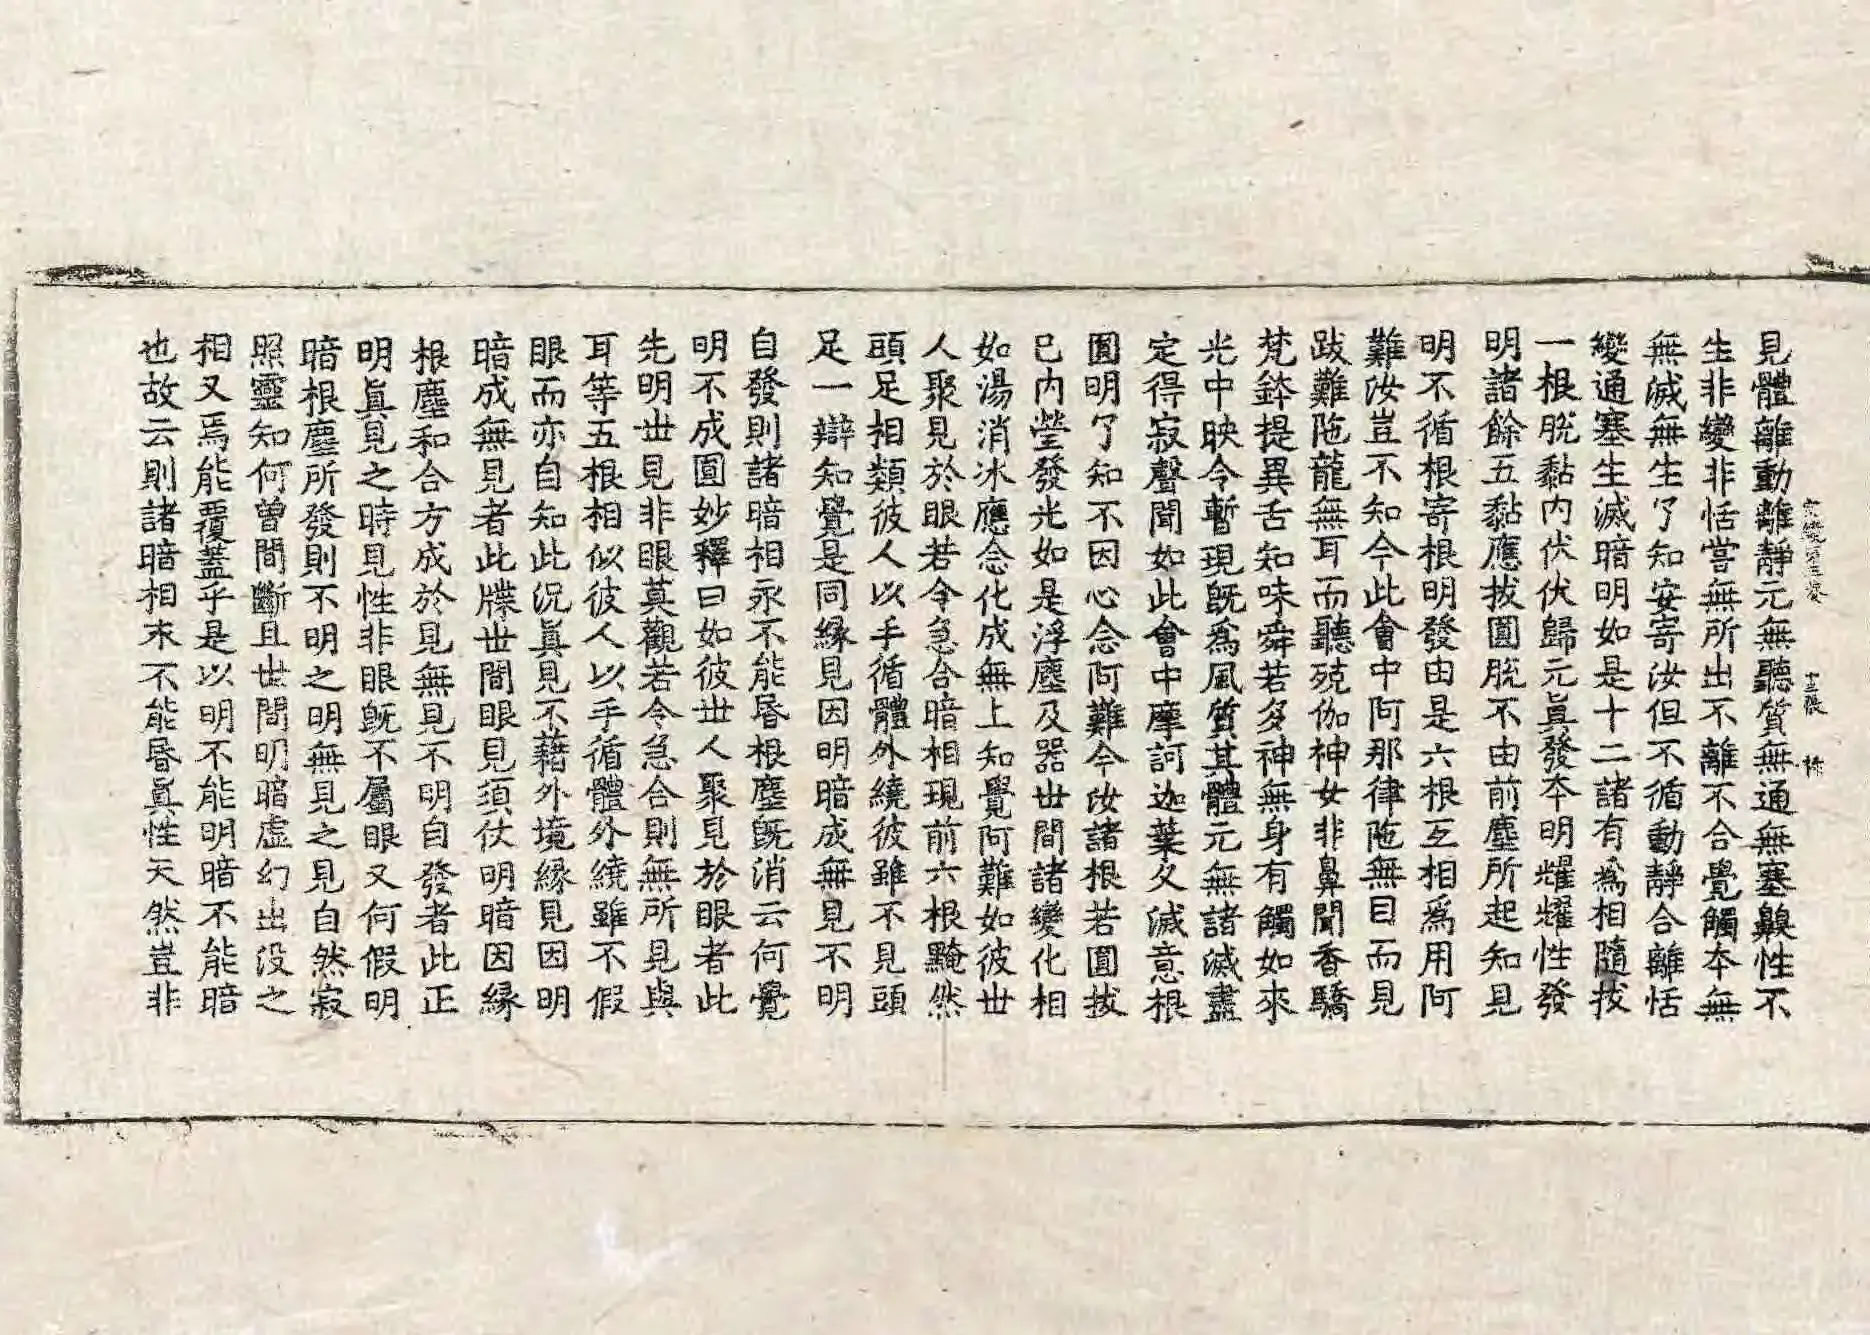 見體離動離靜元無聽質無通無塞齅性不
生非變非恬嘗無所出不離不合覺觸本無
無滅無生了知安寄汝但不循動靜合離恬
變通塞生滅暗明如是十二諸有爲相隨拔
一根脫黏內伏伏歸元眞發本明耀耀性發
明諸餘五黏應拔圓脫不由前塵所起知見
明不循根寄根明發由是六根互相爲用阿
難汝豈不知今此會中阿那律陁無目而見
跋難陁龍無耳而聽殑伽神女非鼻聞香驕
梵鉢提異舌知味舜若多神無身有觸如來
光中映令暫現旣爲風質其體元無諸滅盡
定得寂聲聞如此會中摩訶迦葉久滅意根
圓明了知不因心念阿難今汝諸根若圓拔
已內瑩發光如是浮塵及器世間諸變化相
如湯消冰應念化成無上知覺阿難如彼世
人聚見於眼若令急合暗相現前六根黤然
頭足相類彼人以手循體外繞彼雖不見頭
足一辯知覺是同緣見因明暗成無見不明
自發則諸暗相永不能昏根塵旣消云何覺
明不成圓妙釋曰如彼世人聚見於眼者此
先明世見非眼莫觀若令急合則無所見與
耳等五根相似彼人以手循體外繞雖不假
眼而亦自知此況眞見不藉外境緣見因明
暗成無見者此牒世間眼見須仗明暗因緣
根塵和合方成於見無見不明自發者此正
明眞見之時見性非眼旣不屬眼又何假明
暗根塵所發則不明之明無見之見自然寂
照靈知何曾間斷且世間明暗虛幻出没之
相又焉能覆蓋乎是以明不能明暗不能暗
也故云則諸暗相永不能昏眞性天然豈非